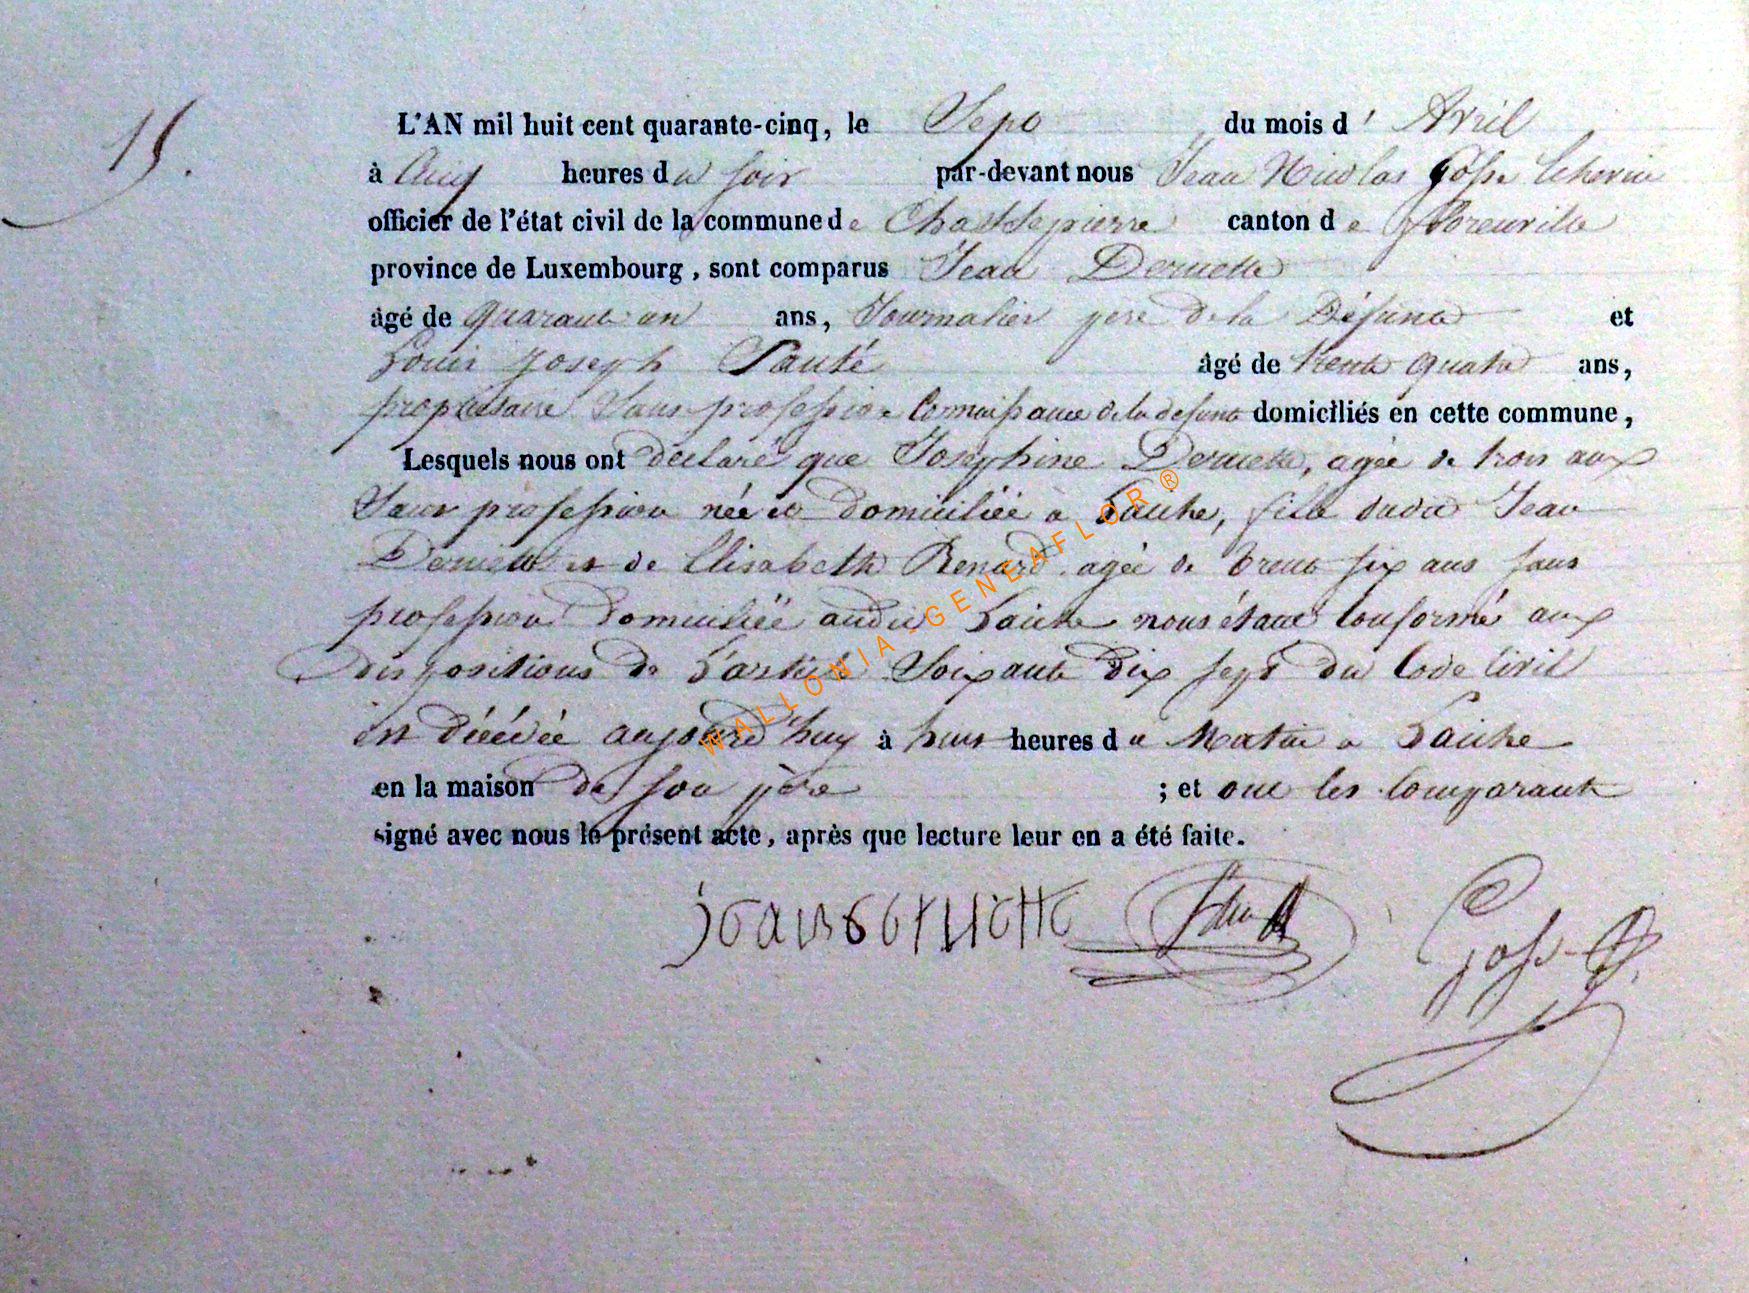 15.
L'AN mil huit cent quarante-cinq, le Sept du mois d' Avril
à Cinq heures du soir par-devant nous Jean Nicolas Gosse Echevin
officier de l'état civil de la commune de Chassepierre canton de florenville
province de Luxembourg, sont comparus Jean Deruette
âgé de quarante un ans, Journalier père de la Défunte et
Louis Joseph âgé de trente quatre ans,
propriétaire Sans profession Connaissance de la defunte domiciliés en cette commune,
Lesquels nous ont déclaré que Josephine Deruette, agée de trois ans
Sans profession née et domiciliée a Laiche, fille dudit Jean
Deruette et de Elisabeth Renard agée de trente six ans sans
profession domiciliée audit Laiche nous étant conformé aux
dispositions de L'article Soixante dix sept du Code Civil
est décédée aujourd'huy à huit heures du Matin a Laiche
en la maison de son père ; et ont les Comparants
signé avec nous le présent acte, après que lecture leur en a été faite.
jean deruette Gosse
WALLONIA-GENEAFLOR®